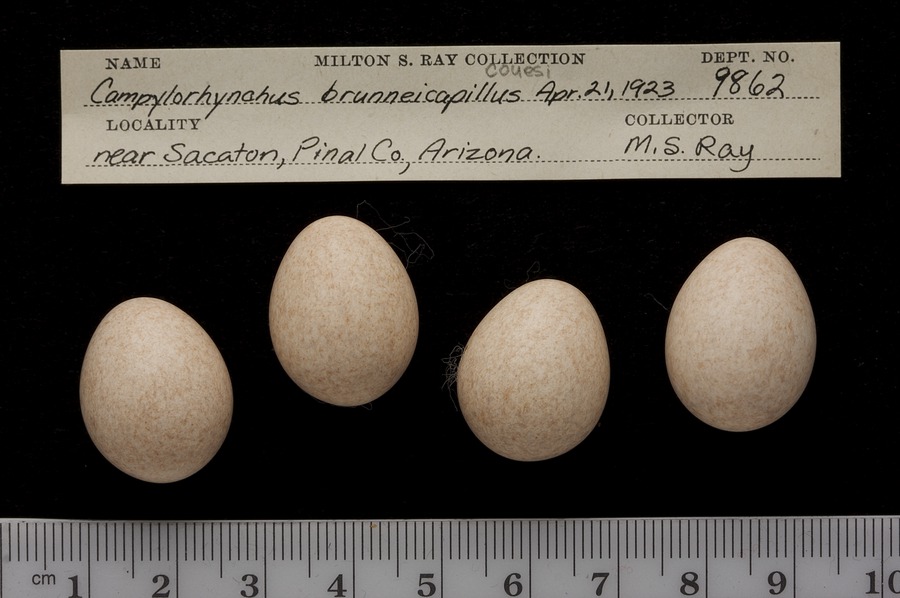 NAME MILTON S. RAY COLLECTION DEPT. NO.
couesi
Campylorhynchus brunneicapillus Apr. 21, 1923 9862
LOCALITY COLLECTOR
near Sacaton, Pinal Co., Arizona. M.S. Ray
cm 1 2 3 4 5 6 7 8 9 10